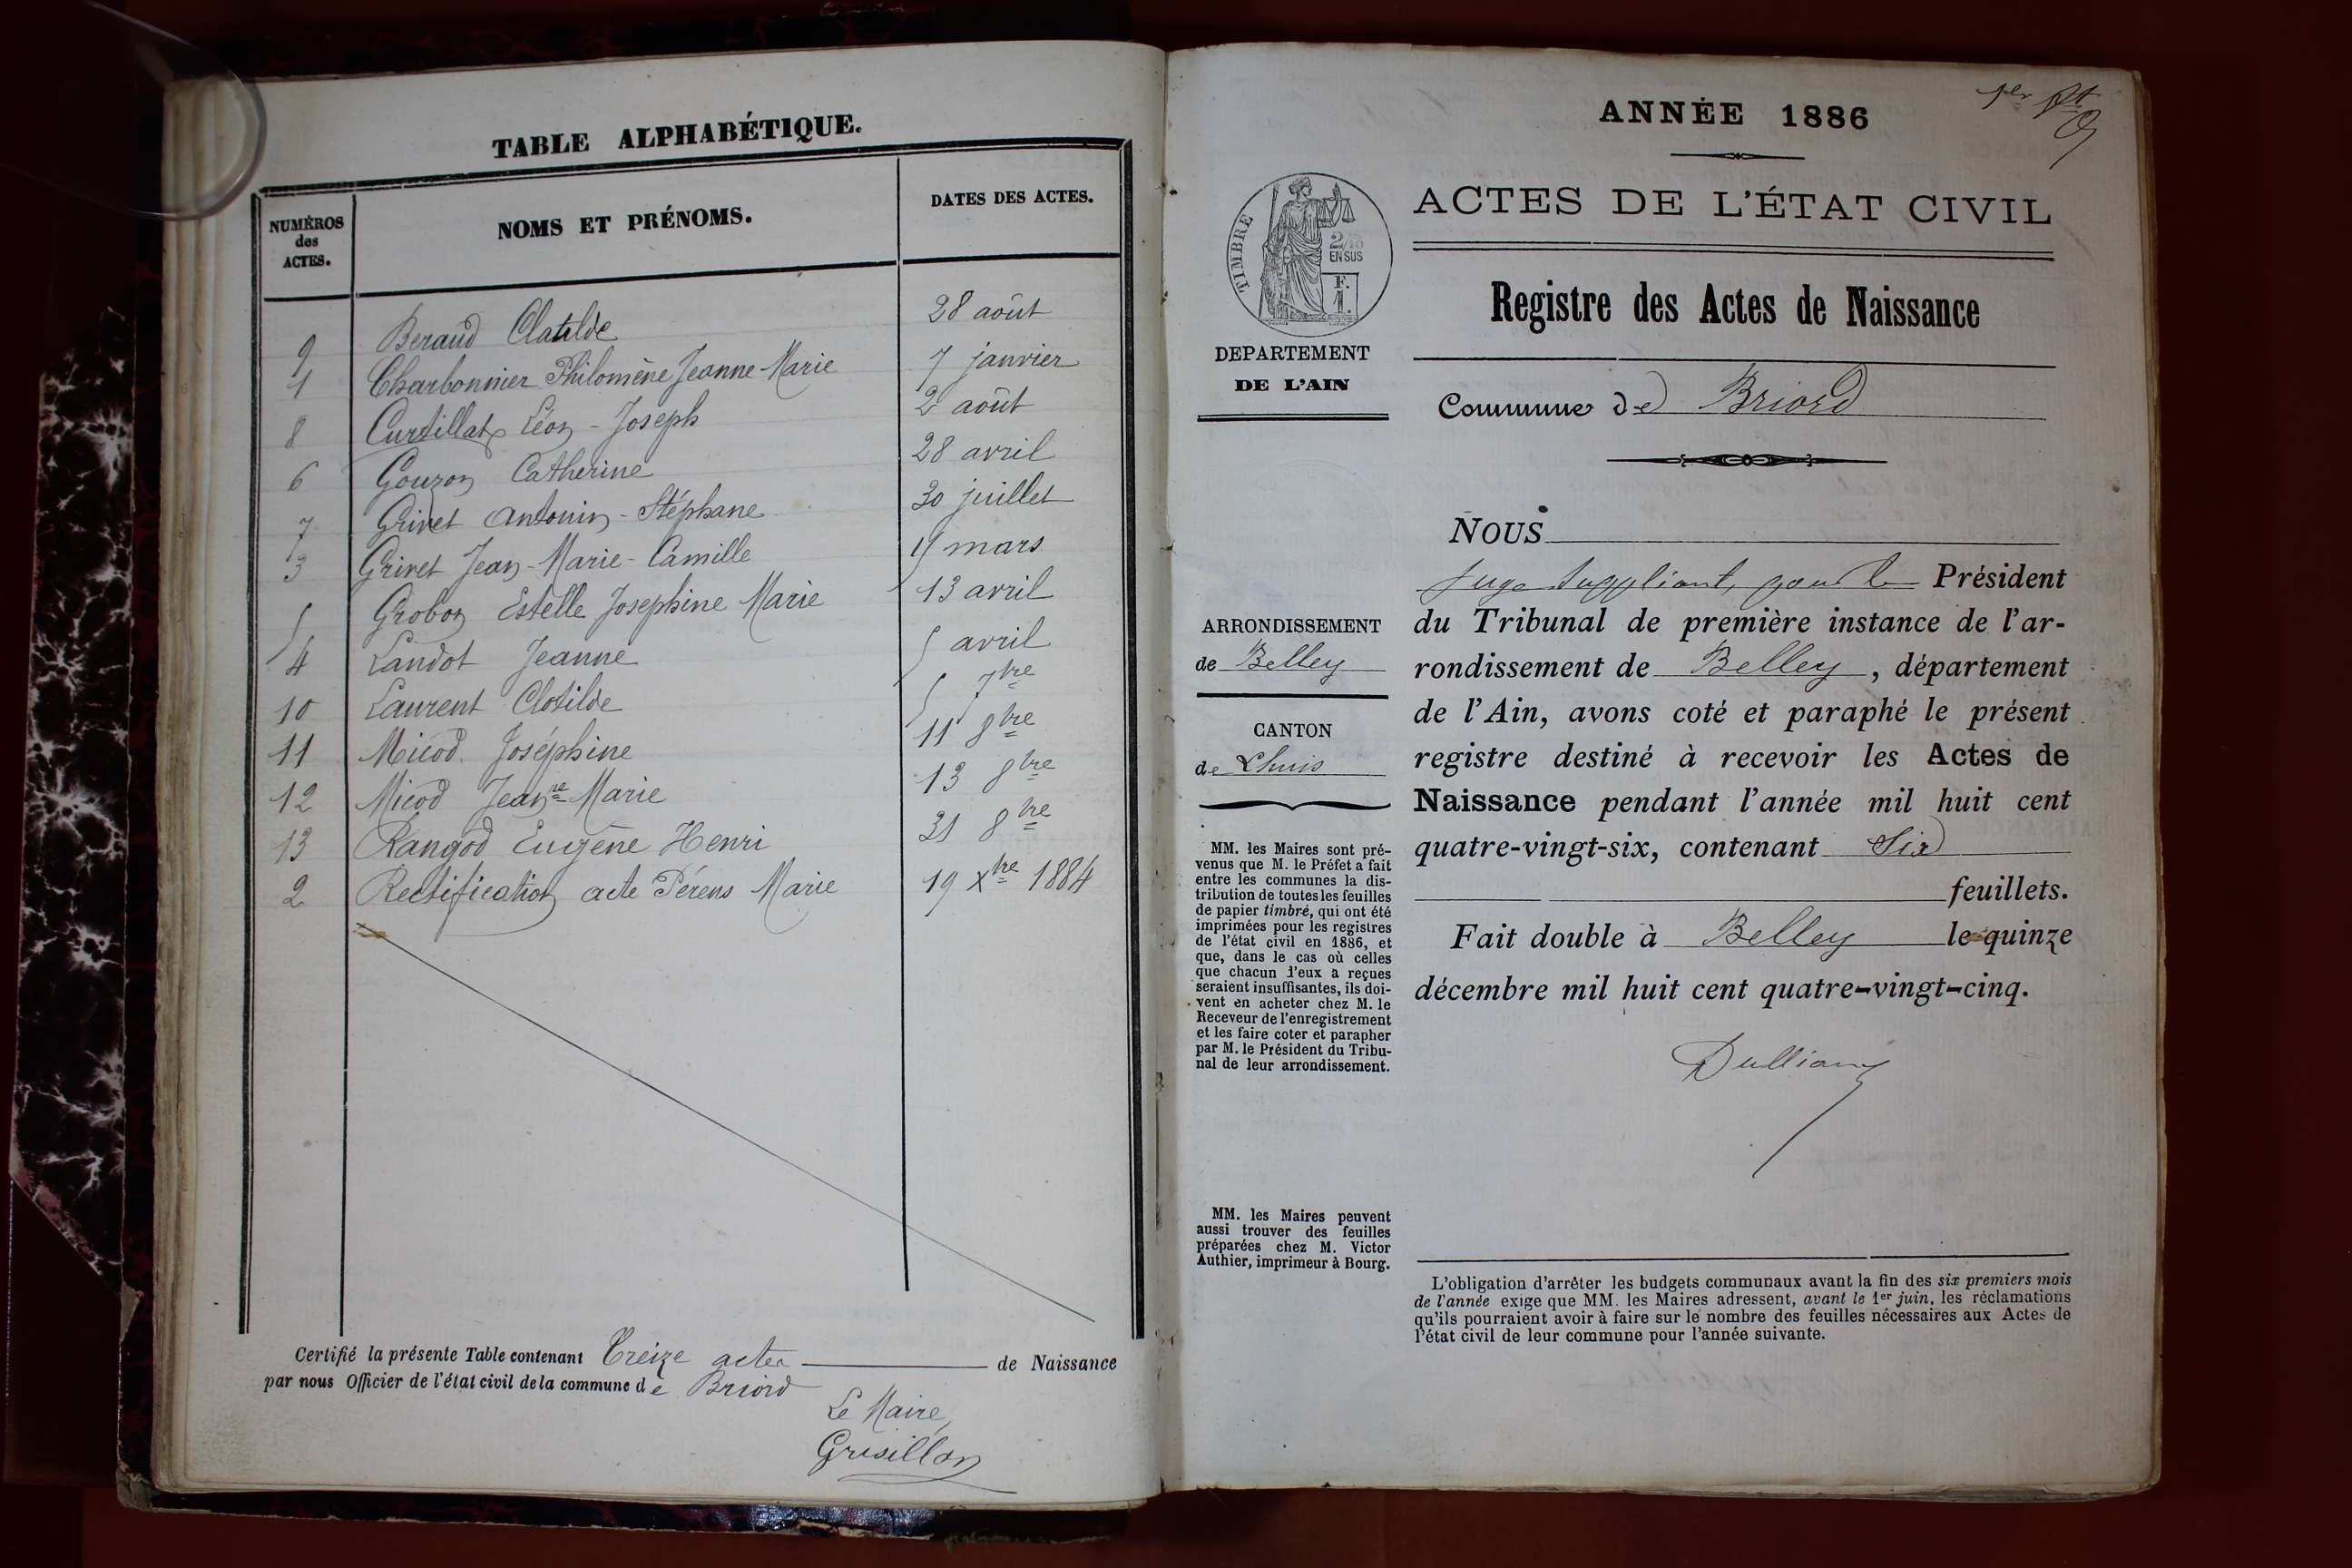 TABLE ALPHABÉTIQUE.
NUMÉROS des ACTES.
NOMS ET PRÉNOMS.
DATES DES ACTES.
9 Beraud Clotilde 28 août
1 Charbonnier Philomène Jeanne-Marie 7 janvier
8 Curtillat Léon-Joseph 2 août
6 Gouzon Catherine 28 avril
7 Grivet Antonin-Stéphane 30 juillet
3 Grivet Jean-Marie-Camille mars
5 Grobon Estelle Josephine Marie 13 avril
4 Landot Jeanne 5 avril
10 Laurent Clotilde 5 7bre
11 Micod Joséphine 11 8bre
12 Micod Jeanne Marie 13 8bre
13 Rangod Eugène Henri 31 8bre
2 Rectification acte Pérens Marie 19 Xbre 1884
Certifié la présente Table contenant Treize actes de Naissance
par nous Officier de l'état civil de la commune de Briord
Le Maire,
Grisillon
1er
ANNÉE 1886
ACTES DE L'ÉTAT CIVIL
Registre des Actes de Naissance
Commune de Briord
TIMBRE
2/10
EN SUS
F.
1.
DEPARTEMENT
DE L'AIN
ARRONDISSEMENT
de Belley
CANTON
de Lhuis
MM. les Maires sont pré-
venus que M. le Préfet a fait
entre les communes la dis-
tribution de toutes les feuilles
de papier timbré, qui ont été
imprimées pour les registres
de l'état civil en 1886, et
que, dans le cas où celles
que chacun d'eux a reçues
seraient insuffisantes, ils doi-
vent en acheter chez M. le
Receveur de l'enregistrement
et les faire coter et parapher
par M. le Président du Tribu-
nal de leur arrondissement.
MM. les Maires peuvent
aussi trouver des feuilles
préparées chez M. Victor
Authier, imprimeur à Bourg.
NOUS
juge suppléant, pour le Président
du Tribunal de première instance de l'ar-
rondissement de Belley, département
de l'Ain, avons coté et paraphé le présent
registre destiné à recevoir les Actes de
Naissance pendant l'année mil huit cent
quatre-vingt-six, contenant Six
feuillets.
Fait double à Belley le quinze
décembre mil huit cent quatre-vingt-cinq.
L'obligation d'arrêter les budgets communaux avant la fin des six premiers mois
de l'année exige que MM. les Maires adressent, avant le 1er juin, les réclamations
qu'ils pourraient avoir à faire sur le nombre des feuilles nécessaires aux Actes de
l'état civil de leur commune pour l'année suivante.